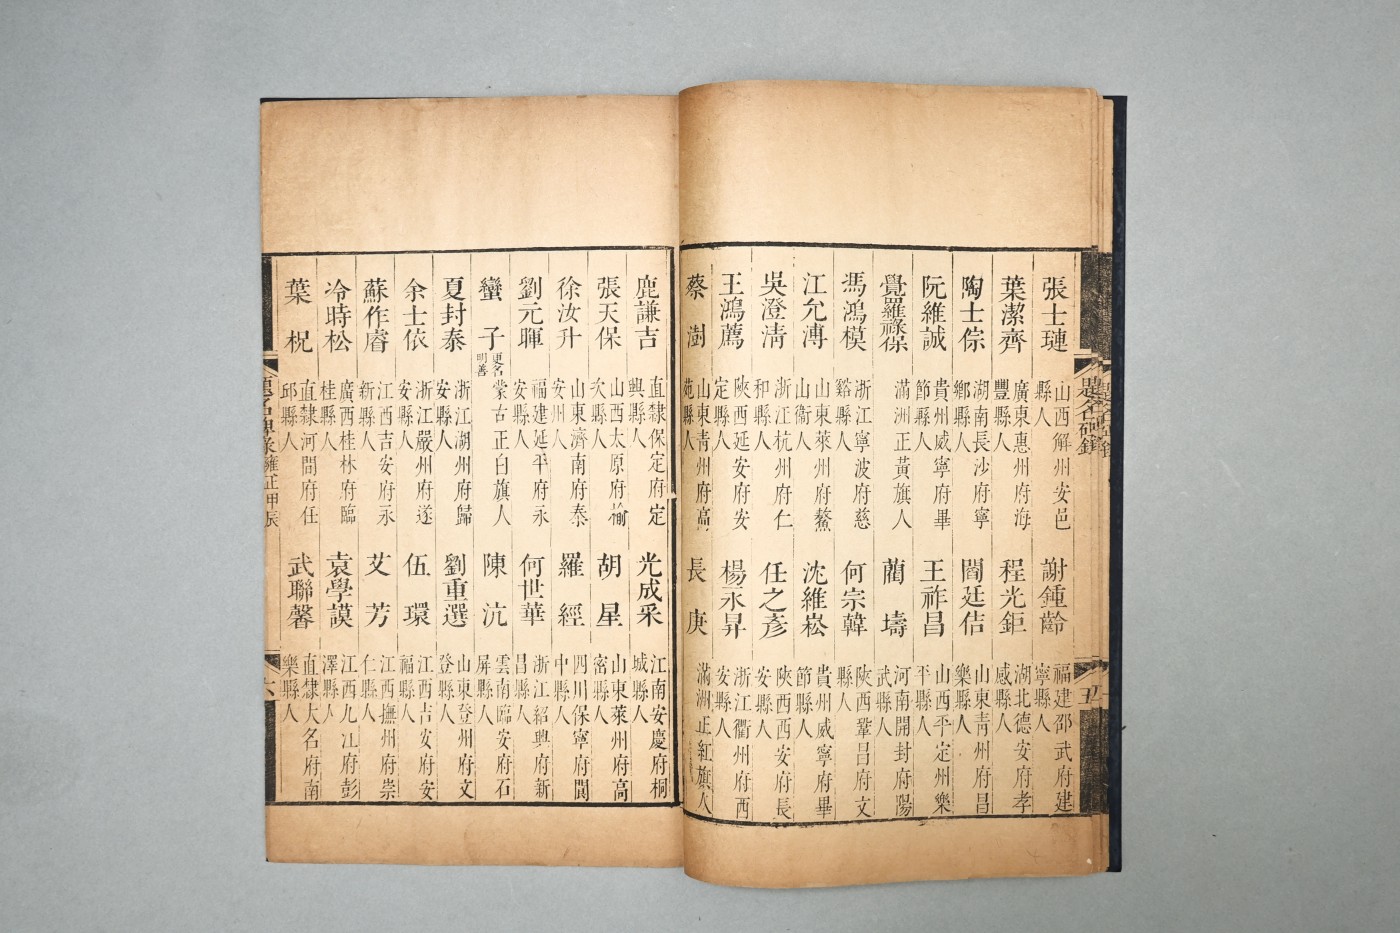 張士璉
山西解州安邑
縣人
謝鍾齡
福建邵武府建
寧縣人
葉潔齊
廣東惠州府海
豐縣人
程光鉅
湖北德安府孝
感縣人
陶士偀
湖南長沙府寧
鄉縣人
閻廷佶
山東青州府昌
樂縣人
阮維誠
貴州威寧府畢
節縣人
王祚昌
山西平定州樂
平縣人
覺羅祿保
滿洲正黃旗人
藺壔
河南開封府陽
武縣人
馮鴻模
浙江寧波府慈
谿縣人
何宗韓
陝西鞏昌府文
縣人
江允溥
山東萊州府鰲
山衛人
沈維崧
貴州威寧府畢
節縣人
吳澄淸
浙江杭州府仁
和縣人
任之彥
陝西西安府長
安縣人
王鴻薦
陝西延安府安
定縣人
楊永昇
浙江衢州府西
安縣人
蔡澍
山東青州府高
苑縣人
長庚
滿洲正紅旗人
題名碑錄
五
鹿謙吉
直隸保定府定
興縣人
光成采
江南安慶府桐
城縣人
張天保
山西太原府榆
次縣人
胡星
山東萊州府高
密縣人
徐汝升
山東濟南府泰
安州人
羅經
四川保寧府閬
中縣人
劉元暉
福建延平府永
安縣人
何世華
浙江紹興府新
昌縣人
蠻子
更名
明善
蒙古正白旗人
陳沆
雲南臨安府石
屏縣人
夏封泰
浙江湖州府歸
安縣人
劉重選
山東登州府文
登縣人
余士依
浙江嚴州府遂
安縣人
伍環
江西吉安府安
福縣人
蘇作睿
江西吉安府永
新縣人
艾芳
江西撫州府崇
仁縣人
冷時松
廣西桂林府臨
桂縣人
袁學謨
江西九江府彭
澤縣人
葉柷
直隸河間府任
邱縣人
武聯馨
直隸大名府南
樂縣人
題名碑錄 雍正甲辰
六